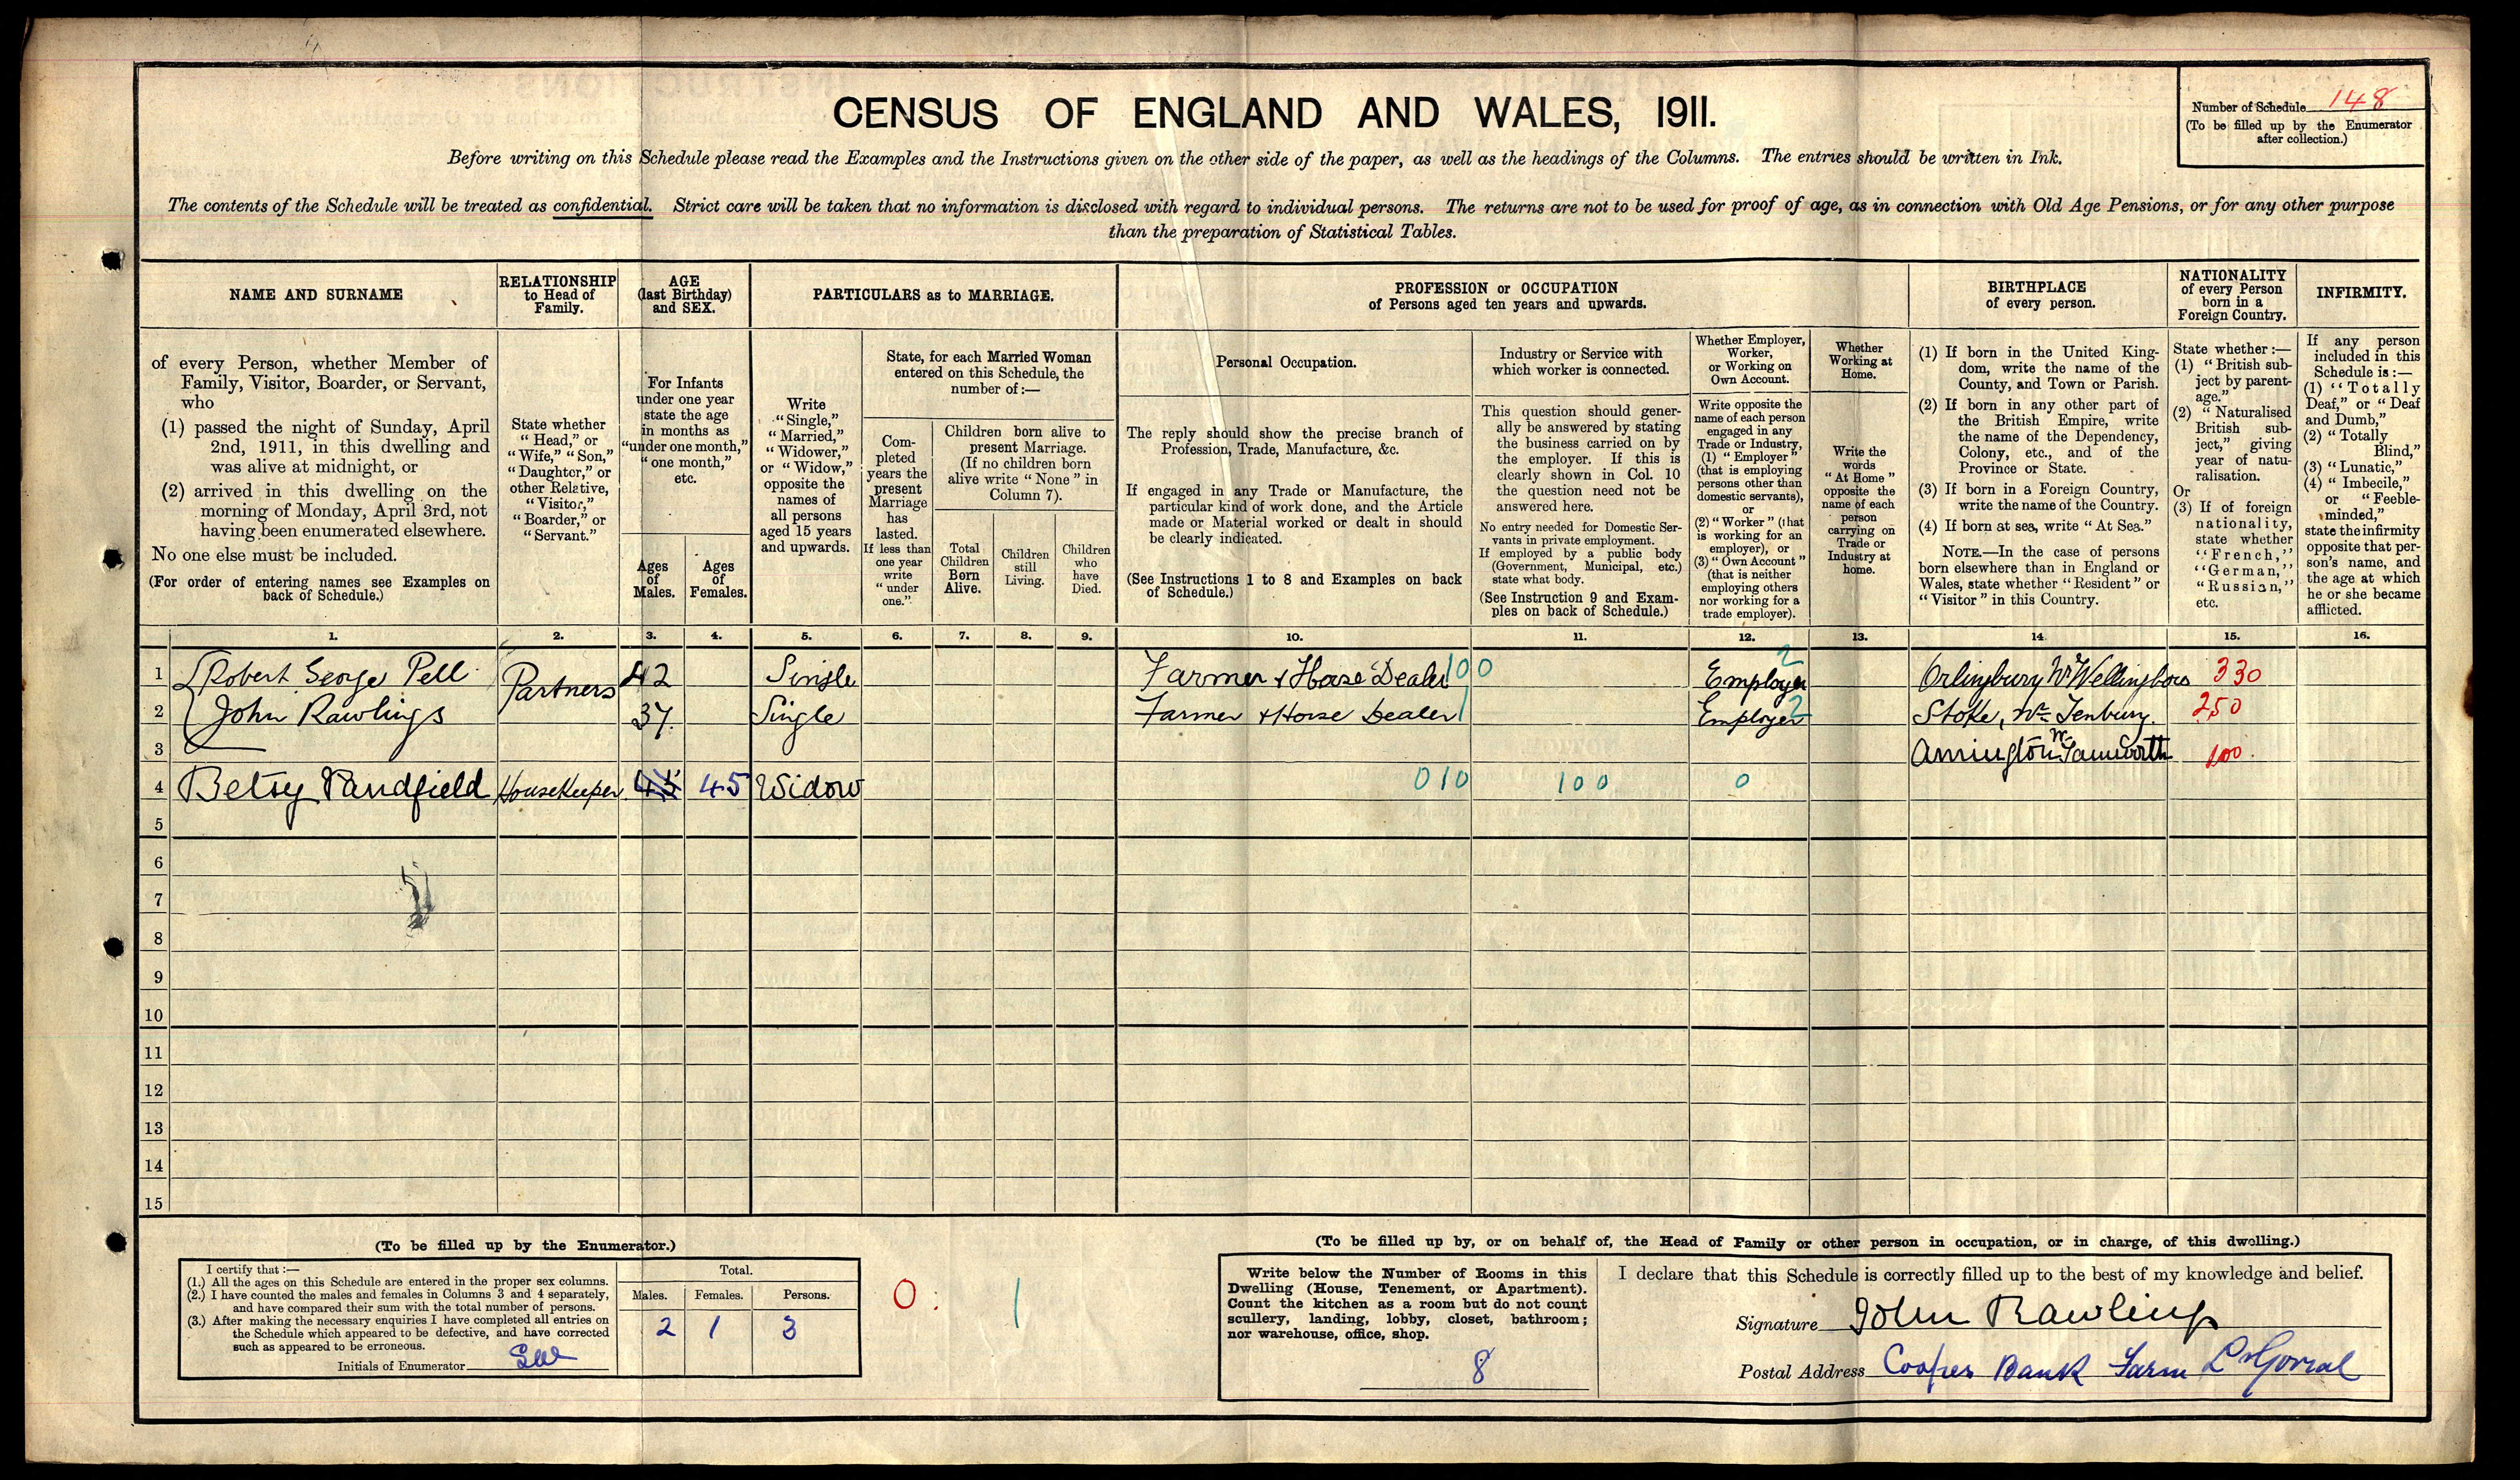 CENSUS OF ENGLAND AND WALES, 1911.
Number of Schedule 148
(To be filled up by the Enumerator
after collection.)
Before writing on this Schedule please read the Examples and the Instructions given on the other side of the paper, as well as the headings of the Columns. The entries should be written in Ink.
The contents of the Schedule will be treated as confidential. Strict care will be taken that no information is disclosed with regard to individual persons. The returns are not to be used for proof of age, as in connection with Old Age Pensions, or for any other purpose
than the preparation of Statistical Tables.
NAME AND SURNAME
of every Person, whether Member of
Family, Visitor, Boarder, or Servant,
who
(1) passed the night of Sunday, April
2nd, 1911, in this dwelling and
was alive at midnight, or
(2) arrived in this dwelling on the
morning of Monday, April 3rd, not
having been enumerated elsewhere.
No one else must be included.
(For order of entering names see Examples on
back of Schedule.)
RELATIONSHIP
to Head of
Family.
State whether
"Head," or
"Wife," "Son,"
"Daughter," or
other Relative,
"Visitor,"
"Boarder," or
"Servant."
AGE
(last Birthday)
and SEX.
For Infants
under one year
state the age
in months as
"under one month,"
"one month,"
etc.
Ages
of
Males.
Ages
of
Females.
PARTICULARS as to MARRIAGE.
Write
"Single,"
"Married,"
"Widower,"
or "Widow,"
opposite the
names of
all persons
aged 15 years
and upwards.
State, for each Married Woman
entered on this Schedule, the
number of:—
Com-
pleted
years the
present
Marriage
has
lasted.
If less than
one year
write
"under
one."
Children born alive to
present Marriage.
(If no children born
alive write "None" in
Column 7).
Total
Children
Born
Alive.
Children
still
Living.
Children
who
have
Died.
PROFESSION or OCCUPATION
of Persons aged ten years and upwards.
Personal Occupation.
The reply should show the precise branch of
Profession, Trade, Manufacture, &c.
If engaged in any Trade or Manufacture, the
particular kind of work done, and the Article
made or Material worked or dealt in should
be clearly indicated.
(See Instructions 1 to 8 and Examples on back
of Schedule.)
Industry or Service with
which worker is connected.
This question should gener-
ally be answered by stating
the business carried on by
the employer. If this is
clearly shown in Col. 10
the question need not be
answered here.
No entry needed for Domestic Ser-
vants in private employment.
If employed by a public body
(Government, Municipal, etc.)
state what body.
(See Instruction 9 and Exam-
ples on back of Schedule.)
Whether Employer,
Worker,
or Working on
Own Account.
Write opposite the
name of each person
engaged in any
Trade or Industry,
(1) "Employer"
(that is employing
persons other than
domestic servants),
or
(2) "Worker" (that
is working for an
employer), or
(3) "Own Account"
(that is neither
employing others
nor working for a
trade employer).
Whether
Working at
Home.
Write the
words
"At Home"
opposite the
name of each
person
carrying on
Trade or
Industry at
home.
BIRTHPLACE
of every person.
(1) If born in the United King-
dom, write the name of the
County, and Town or Parish.
(2) If born in any other part of
the British Empire, write
the name of the Dependency,
Colony, etc., and of the
Province or State.
(3) If born in a Foreign Country,
write the name of the Country.
(4) If born at sea, write "At Sea."
NOTE.—In the case of persons
born elsewhere than in England or
Wales, state whether "Resident" or
"Visitor" in this Country.
NATIONALITY
of every Person
born in a
Foreign Country.
State whether:—
(1) "British sub-
ject by parent-
age."
(2) "Naturalised
British sub-
ject," giving
year of natu-
ralisation.
Or
(3) If of foreign
nationality,
state whether
"French,"
"German,"
"Russian,"
etc.
INFIRMITY.
If any person
included in this
Schedule is:—
(1) "Totally
Deaf," or "Deaf
and Dumb,"
(2) "Totally
Blind,"
(3) "Lunatic,"
(4) "Imbecile,"
or "Feeble-
minded,"
state the infirmity
opposite that per-
son's name, and
the age at which
he or she became
afflicted.
1. 2. 3. 4. 5. 6. 7. 8. 9. 10. 11. 12. 13. 14. 15. 16.
1 Robert George Pell Partners 42 Single Farmer & Horse Dealer 100 Employer 2 Orlingbury Nr Wellingboro 330
2 John Rawlings 37. Single Farmer & Horse Dealer 1 Employer 2 Stoke, Nr Tenbury. 250
3 Amington Nr Tamworth 100.
4 Betsy Housekeeper 45 45 Widow 010 100 0
5
6
7
8
9
10
11
12
13
14
15
(To be filled up by the Enumerator.)
I certify that:—
(1.) All the ages on this Schedule are entered in the proper sex columns.
(2.) I have counted the males and females in Columns 3 and 4 separately,
and have compared their sum with the total number of persons.
(3.) After making the necessary enquiries I have completed all entries on
the Schedule which appeared to be defective, and have corrected
such as appeared to be erroneous.
Initials of Enumerator
Total.
Males. Females. Persons.
2 1 3
0. 1
(To be filled up by, or on behalf of, the Head of Family or other person in occupation, or in charge, of this dwelling.)
Write below the Number of Rooms in this
Dwelling (House, Tenement, or Apartment).
Count the kitchen as a room but do not count
scullery, landing, lobby, closet, bathroom;
nor warehouse, office, shop.
8
I declare that this Schedule is correctly filled up to the best of my knowledge and belief.
Signature John Rawlings
Postal Address Cooper Bank Farm L Gornal